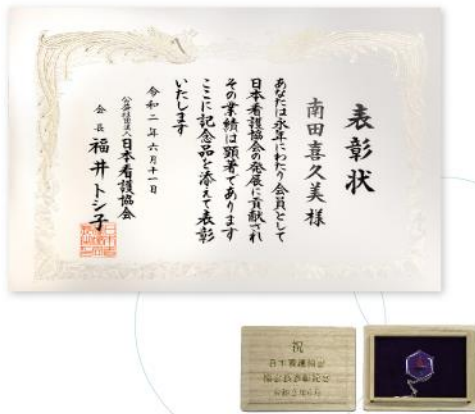 表彰状
南田喜久美様
あなたは永年にわたり会員として
日本看護協会の発展に貢献され
その業績は顕著であります
ここに記念品を添えて表彰
いたします
令和二年六月十一日
公益社団法人日本看護協会
会長 福井トシ子
祝
日本看護協会